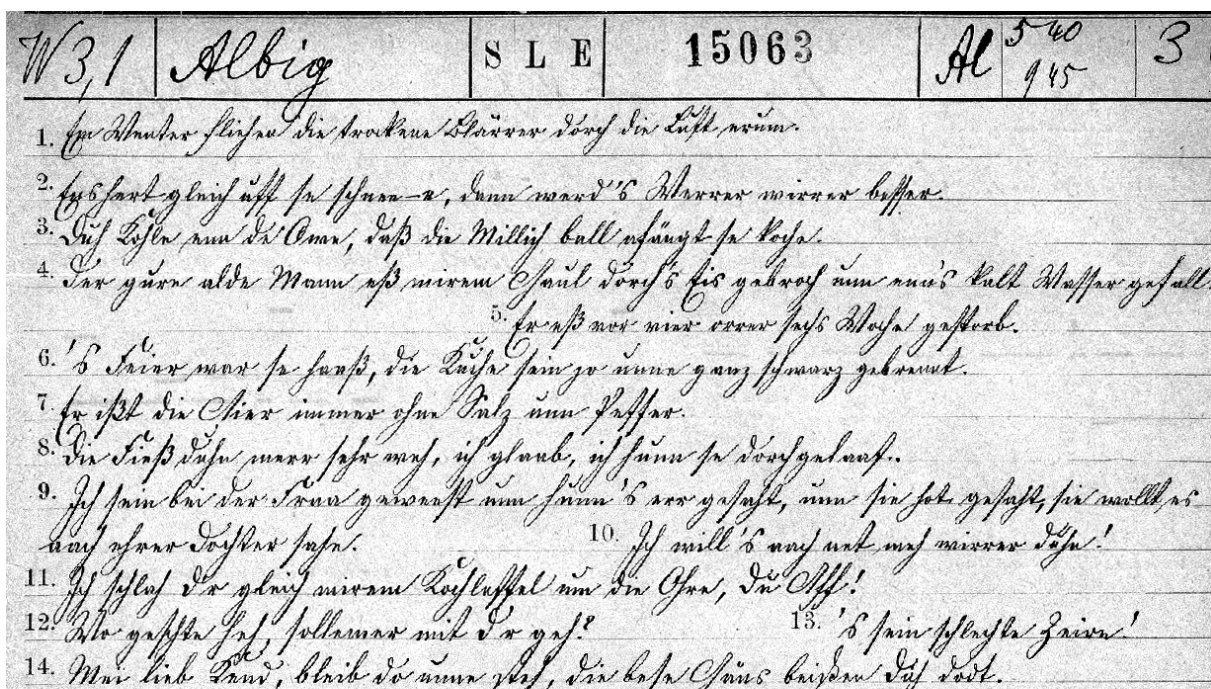 W 3,1 Albig S L E 15063 Al 5 40 9 45 3
1. Em Wenter fliehen die trockene Blärrer dorch die Luft erum.
2. Eps hert gleich uff se schnee-e, dann werd's Werrer wirrer besser.
3. Duh Kohle enn de Owe, daß die Millich ball afängt se koche.
4. Der gure alde Mann eß mirem Gaul dorch's Eis gebroch unn enn's kalt Wasser gefall.
5. Er eß vor vier orrer sechs Woche gestorb.
6. 's Feier war se haaß, die Kuche sein jo unne ganz schwarz gebrennt.
7. Er ißt die Aier immer ohne Salz unn Peffer.
8. Die Fieß duhn merr sehr weh, ich glaab, ich hunn se dorchgelaaf.
9. Ich sein bei der Fraa geweest unn hunn's err gesaht, unn sie hot gesaht, sie wollt es
aach ehrer Dochter sahe. 10. Ich will's aach net meh wirrer duhn!
11. Ich schlah d'r gleich mirem Kochleffel um die Ohre, du Aff!
12. Wo gehschte heh, sollemer mit d'r geh? 13. 's sein schlechte Zeire!
14. Mei lieb Kend, bleib do unne steh, die bese Gäns beißen dich dodt.